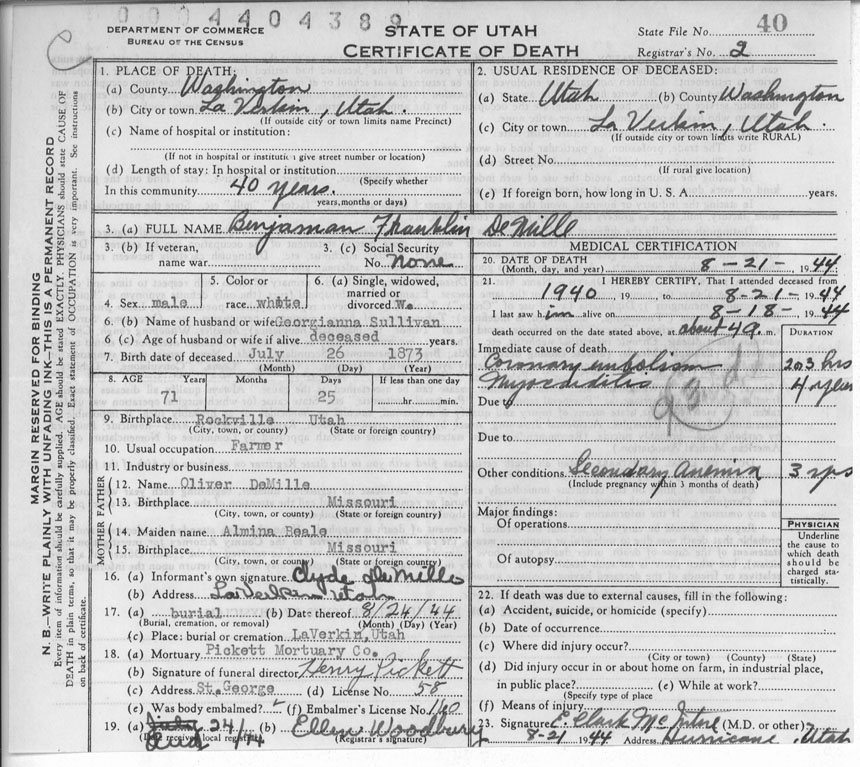 0004404389
DEPARTMENT OF COMMERCE
BUREAU OF THE CENSUS
STATE OF UTAH
CERTIFICATE OF DEATH
State File No. 40
Registrar's No. 2
MARGIN RESERVED FOR BINDING
N. B.—WRITE PLAINLY WITH UNFADING INK—THIS IS A PERMANENT RECORD
Every item of information should be carefully supplied. AGE should be stated EXACTLY. PHYSICIANS should state CAUSE OF
DEATH in plain terms, so that it may be properly classified. Exact statement of OCCUPATION is very important. See instructions
on back of certificate.
1. PLACE OF DEATH:
(a) County Washington
(b) City or town La Verkin, Utah.
(If outside city or town limits name Precinct)
(c) Name of hospital or institution:
(If not in hospital or institution give street number or location)
(d) Length of stay: In hospital or institution
(Specify whether
In this community 40 years.
years, months or days)
2. USUAL RESIDENCE OF DECEASED:
(a) State Utah (b) County Washington
(c) City or town La Verkin, Utah.
(If outside city or town limits write RURAL)
(d) Street No.
(If rural give location)
(e) If foreign born, how long in U. S. A. years.
3. (a) FULL NAME Benjaman Franklin DeMille
3. (b) If veteran,
name war
3. (c) Social Security
No. None
4. Sex male
5. Color or
race white
6. (a) Single, widowed,
married or
divorced w.
6. (b) Name of husband or wife Georgianna Sullivan
6. (c) Age of husband or wife if alive deceased years.
7. Birth date of deceased July 26 1873
(Month) (Day) (Year)
8. AGE Years Months Days If less than one day
71 25 hr. min.
9. Birthplace Rockville Utah
(City, town, or county) (State or foreign country)
10. Usual occupation Farmer
11. Industry or business
FATHER
12. Name Oliver DeMille
13. Birthplace Missouri
(City, town, or county) (State or foreign country)
MOTHER
14. Maiden name Almina Beale
15. Birthplace Missouri
(City, town, or county) (State or foreign country)
16. (a) Informant's own signature Clyde DeMille
(b) Address LaVerkin Utah
17. (a) burial (b) Date thereof 8/24/44
(Burial, cremation, or removal) (Month) (Day) (Year)
(c) Place: burial or cremation LaVerkin, Utah
18. (a) Mortuary Pickett Mortuary Co.
(b) Signature of funeral director Henry Pickett
(c) Address St. George (d) License No. 58
(e) Was body embalmed? ✓ (f) Embalmer's License No. 160
19. (a) 24/44 (b) Ellen Woodbury
(Date received local registrar) (Registrar's signature)
MEDICAL CERTIFICATION
20. DATE OF DEATH
(Month, day, and year) 8-21-, 1944
21. I HEREBY CERTIFY, That I attended deceased from
1940, 19, to 8-21-1944
I last saw him alive on 8-18-1944
death occurred on the date stated above, at about 4 a. m.
DURATION
Immediate cause of death
Coronary embolism 2 or 3 hrs
Myocarditis 4 years
Due to
93 d
Due to
Other conditions Secondary Anemia 3 yrs
(Include pregnancy within 3 months of death)
Major findings:
Of operations
Of autopsy
PHYSICIAN
Underline
the cause to
which death
should be
charged sta-
tistically.
22. If death was due to external causes, fill in the following:
(a) Accident, suicide, or homicide (specify)
(b) Date of occurrence
(c) Where did injury occur?
(City or town) (County) (State)
(d) Did injury occur in or about home on farm, in industrial place,
in public place? (e) While at work?
(Specify type of place
(f) Means of injury
23. Signature E. Clark McIntire (M.D. or other)
8-21 1944 Address Hurricane, Utah